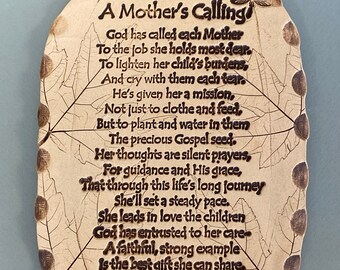 A Mother's Calling
God has called each Mother
To the job she holds most dear.
To lighten her child's burdens,
And cry with them each tear.
He's given her a mission,
Not just to clothe and feed,
But to plant and water in them
The precious Gospel seed.
Her thoughts are silent prayers,
For guidance and His grace,
That through this life's long journey
She'll set a steady pace.
She leads in love the children
God has entrusted to her care-
A faithful, strong example
Is the best gift she can share.